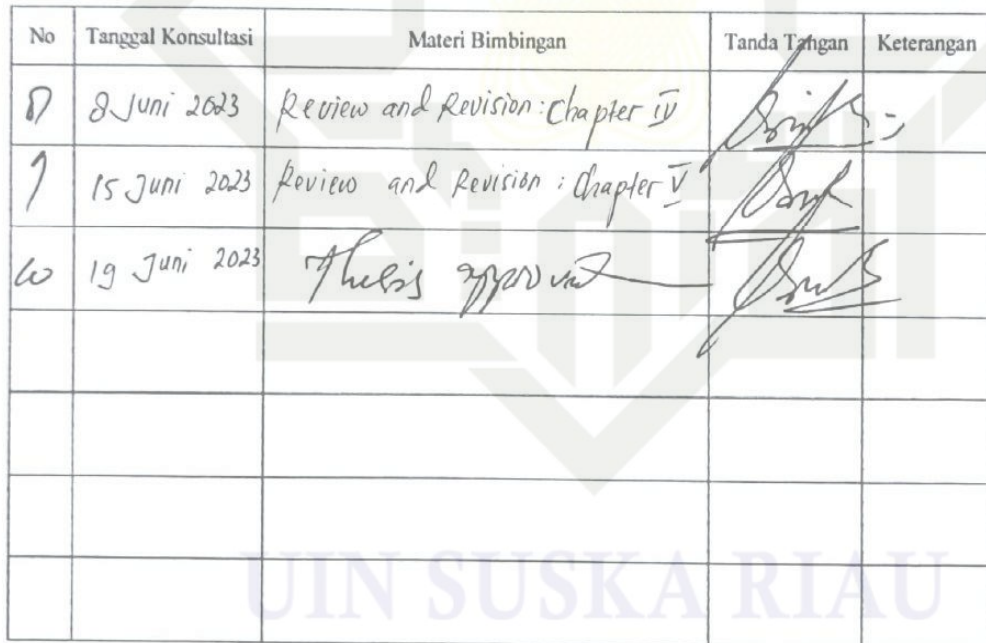 No Tanggal Konsultasi Materi Bimbingan Tanda Tangan Keterangan
8 8 Juni 2023 Review and Revision : Chapter IV
9 15 Juni 2023 Review and Revision : Chapter V
10 19 Juni 2023 Thesis approval
UIN SUSKA RIAU